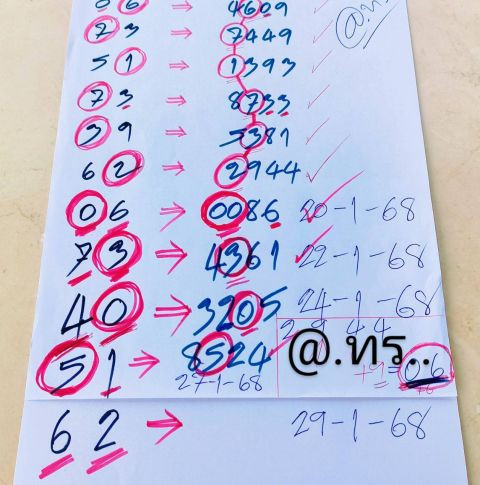 06 ⇒ 4609 ✓
73 ⇒ 7449 ✓ @.ทร
51 ⇒ 1393 ✓
73 ⇒ 8733 ✓
39 ⇒ 5381 ✓
62 ⇒ 2944 ✓
06 ⇒ 0086 20-1-68
73 ⇒ 4361 22-1-68
40 ⇒ 3205 24-1-68
2944
51 → 8524 @.ทร..
27-1-68 +9=06
62 → 29-1-68